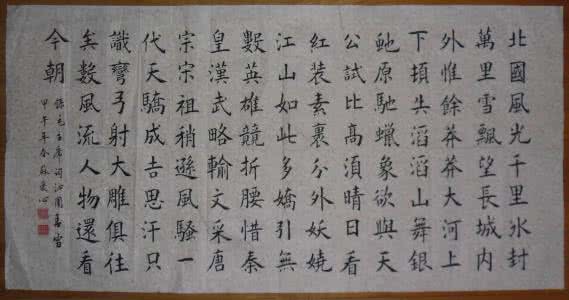 北國風光千里氷封
萬里雪飄望長城内
外惟餘莽莽大河上
下頓失滔滔山舞銀
虵原馳蠟象欲與天
公試比高須晴日看
紅装素裹分外妖嬈
江山如此多嬌引無
數英雄競折腰惜秦
皇漢武略輸文采唐
宗宋祖稍遜風騷一
代天驕成吉思汗只
識彎弓射大雕俱往
矣數風流人物還看
今朝
錄毛主席词沁園春雪
甲午年春